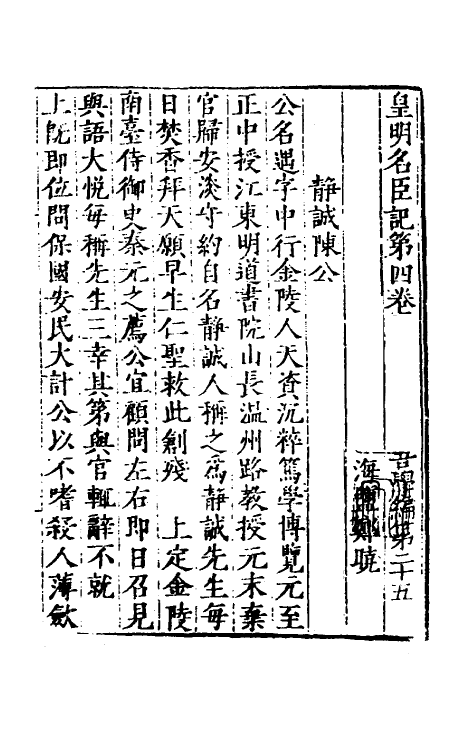 皇明名臣記第四卷
吾學編第二十五
海鹽鄭曉
靜誠陳公
公名遇字中行金陵人天資沉粹篤學博覽元至
正中授江東明道書院山長温州路教授元末棄
官歸安淡守約自名靜誠人稱之爲靜誠先生每
日焚香拜天願早生仁聖救此創殘　上定金陵
南臺侍御史秦元之薦公宜顧問左右即日召見
與語大悅每稱先生三幸其第與官輒辭不就
上旣即位問保國安民大計公以不嗜殺人薄斂